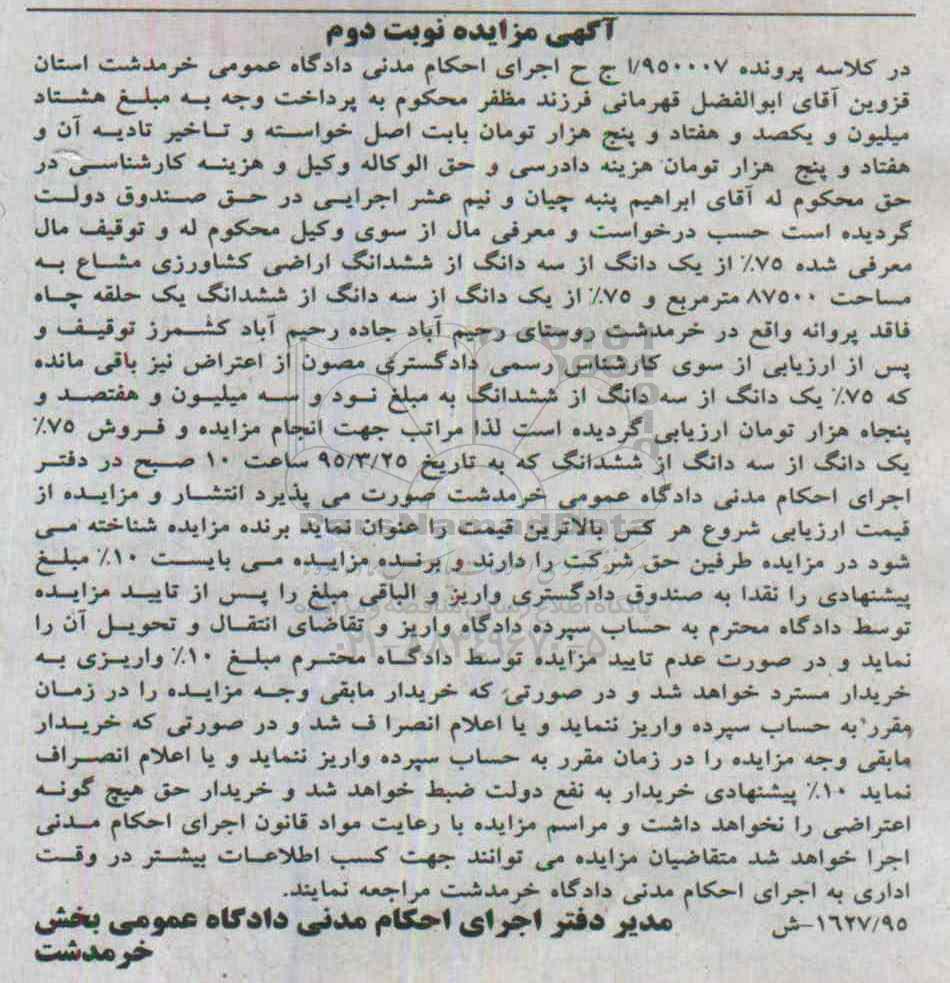 آگهی مزایده نوبت دوم
در کلاسه پرونده ۱/۹۵۰۰۰۷ ج ح اجرای احکام مدنی دادگاه عمومی خرمدشت استان
قزوین آقای ابوالفضل قهرمانی فرزند مظفر محکوم به پرداخت وجه به مبلغ هشتاد
میلیون و یکصد و هفتاد و پنج هزار تومان بابت اصل خواسته و تاخیر تادیه آن و
هفتاد و پنج هزار تومان هزینه دادرسی و حق الوکاله وکیل و هزینه کارشناسی در
حق محکوم له آقای ابراهیم پنبه چیان و نیم عشر اجرایی در حق صندوق دولت
گردیده است حسب درخواست و معرفی مال از سوی وکیل محکوم له و توقیف مال
معرفی شده ۷۵٪ از یک دانگ از سه دانگ از ششدانگ اراضی کشاورزی مشاع به
مساحت ۸۷۵۰۰ مترمربع و ۷۵٪ از یک دانگ از سه دانگ از ششدانگ یک حلقه چاه
فاقد پروانه واقع در خرمدشت روستای رحیم آباد جاده رحیم آباد کشمرز توقیف و
پس از ارزیابی از سوی کارشناس رسمی دادگستری مصون از اعتراض نیز باقی مانده
که ۷۵٪ یک دانگ از سه دانگ از ششدانگ به مبلغ نود و سه میلیون و هفتصد و
پنجاه هزار تومان ارزیابی گردیده است لذا مراتب جهت انجام مزایده و فروش ۷۵٪
یک دانگ از سه دانگ از ششدانگ که به تاریخ ۹۵/۳/۲۵ ساعت ۱۰ صبح در دفتر
اجرای احکام مدنی دادگاه عمومی خرمدشت صورت می پذیرد انتشار و مزایده از
قیمت ارزیابی شروع هر کس بالاترین قیمت را عنوان نماید برنده مزایده شناخته می
شود در مزایده طرفین حق شرکت را دارند و برنده مزایده می بایست ۱۰٪ مبلغ
پیشنهادی را نقدا به صندوق دادگستری واریز و الباقی مبلغ را پس از تایید مزایده
توسط دادگاه محترم به حساب سپرده دادگاه واریز و تقاضای انتقال و تحویل آن را
نماید و در صورت عدم تایید مزایده توسط دادگاه محترم مبلغ ۱۰٪ واریزی به
خریدار مسترد خواهد شد و در صورتی که خریدار مابقی وجه مزایده را در زمان
مقرر به حساب سپرده واریز ننماید و یا اعلام انصرا ف شد و در صورتی که خریدار
مابقی وجه مزایده را در زمان مقرر به حساب سپرده واریز ننماید و یا اعلام انصراف
نماید ۱۰٪ پیشنهادی خریدار به نفع دولت ضبط خواهد شد و خریدار حق هیچ گونه
اعتراضی را نخواهد داشت و مراسم مزایده با رعایت مواد قانون اجرای احکام مدنی
اجرا خواهد شد متقاضیان مزایده می توانند جهت کسب اطلاعات بیشتر در وقت
اداری به اجرای احکام مدنی دادگاه خرمدشت مراجعه نمایند.
۱۶۲۷/۹۵-ش مدیر دفتر اجرای احکام مدنی دادگاه عمومی بخش
خرمدشت